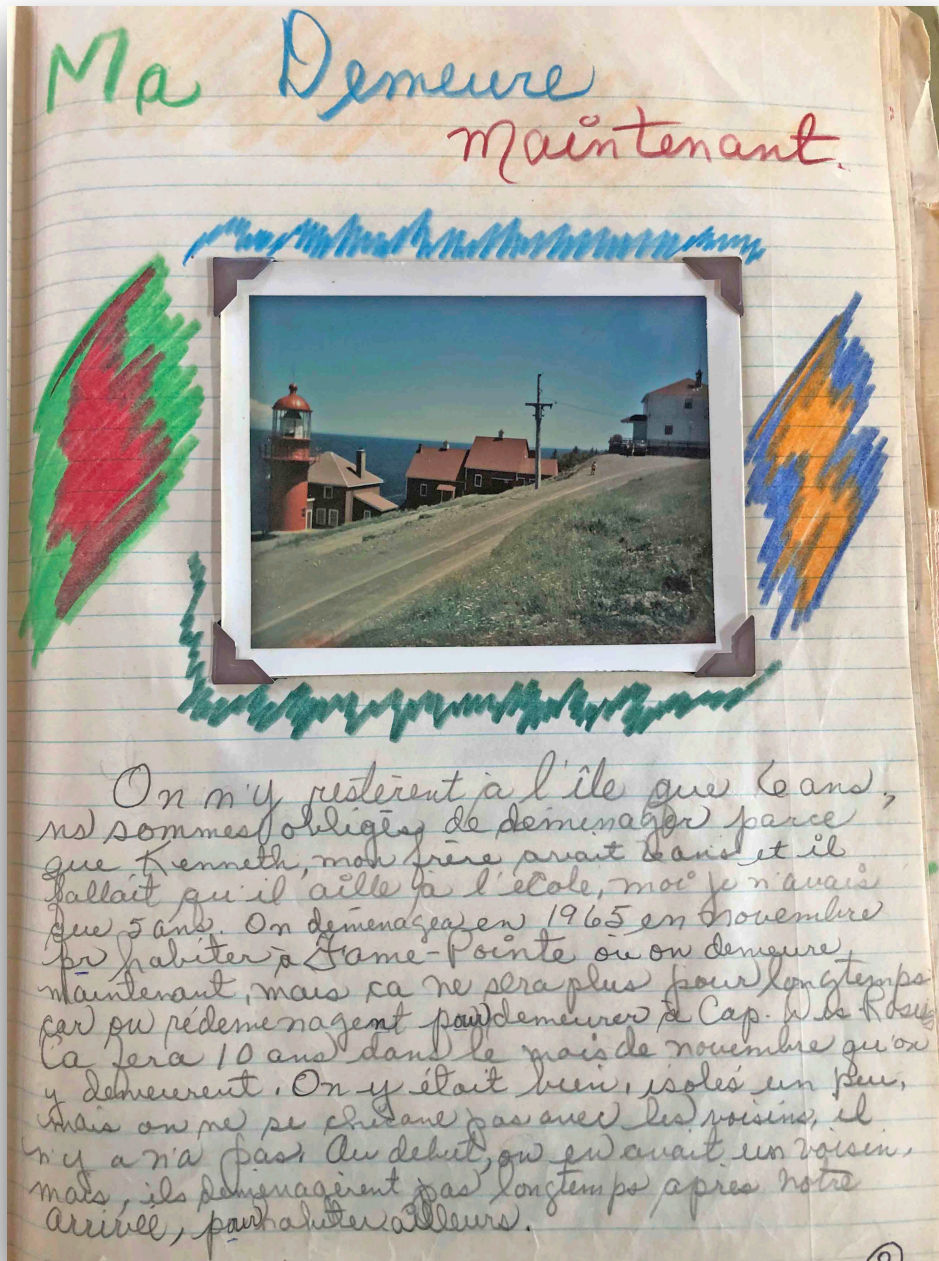 Ma Demeure
maintenant.
On n'y restèrent à l'île que 6 ans,
ns sommes obligés de déminager parce
que Kenneth, mon frère avait 6 ans et il
fallait qu'il aille à l'école, moi je n'avais
que 5 ans. On déménagea en 1965 en novembre
pr habiter à Fame-Pointe ou on demeure
maintenant, mais ca ne sera plus pour longtemps
car ou rédemenagent pour demeurer à Cap. Des Rosiers
Ca fera 10 ans dans le mois de novembre qu'on
y demeurent. On y était bien, isolés un peu,
mais on ne se chicane pas avec les voisins, il
n'y a n'a pas. Au debut, on en avait un voisin,
mais, ils deménagèrent pas longtemps après notre
arrivée, pour habiter ailleurs.